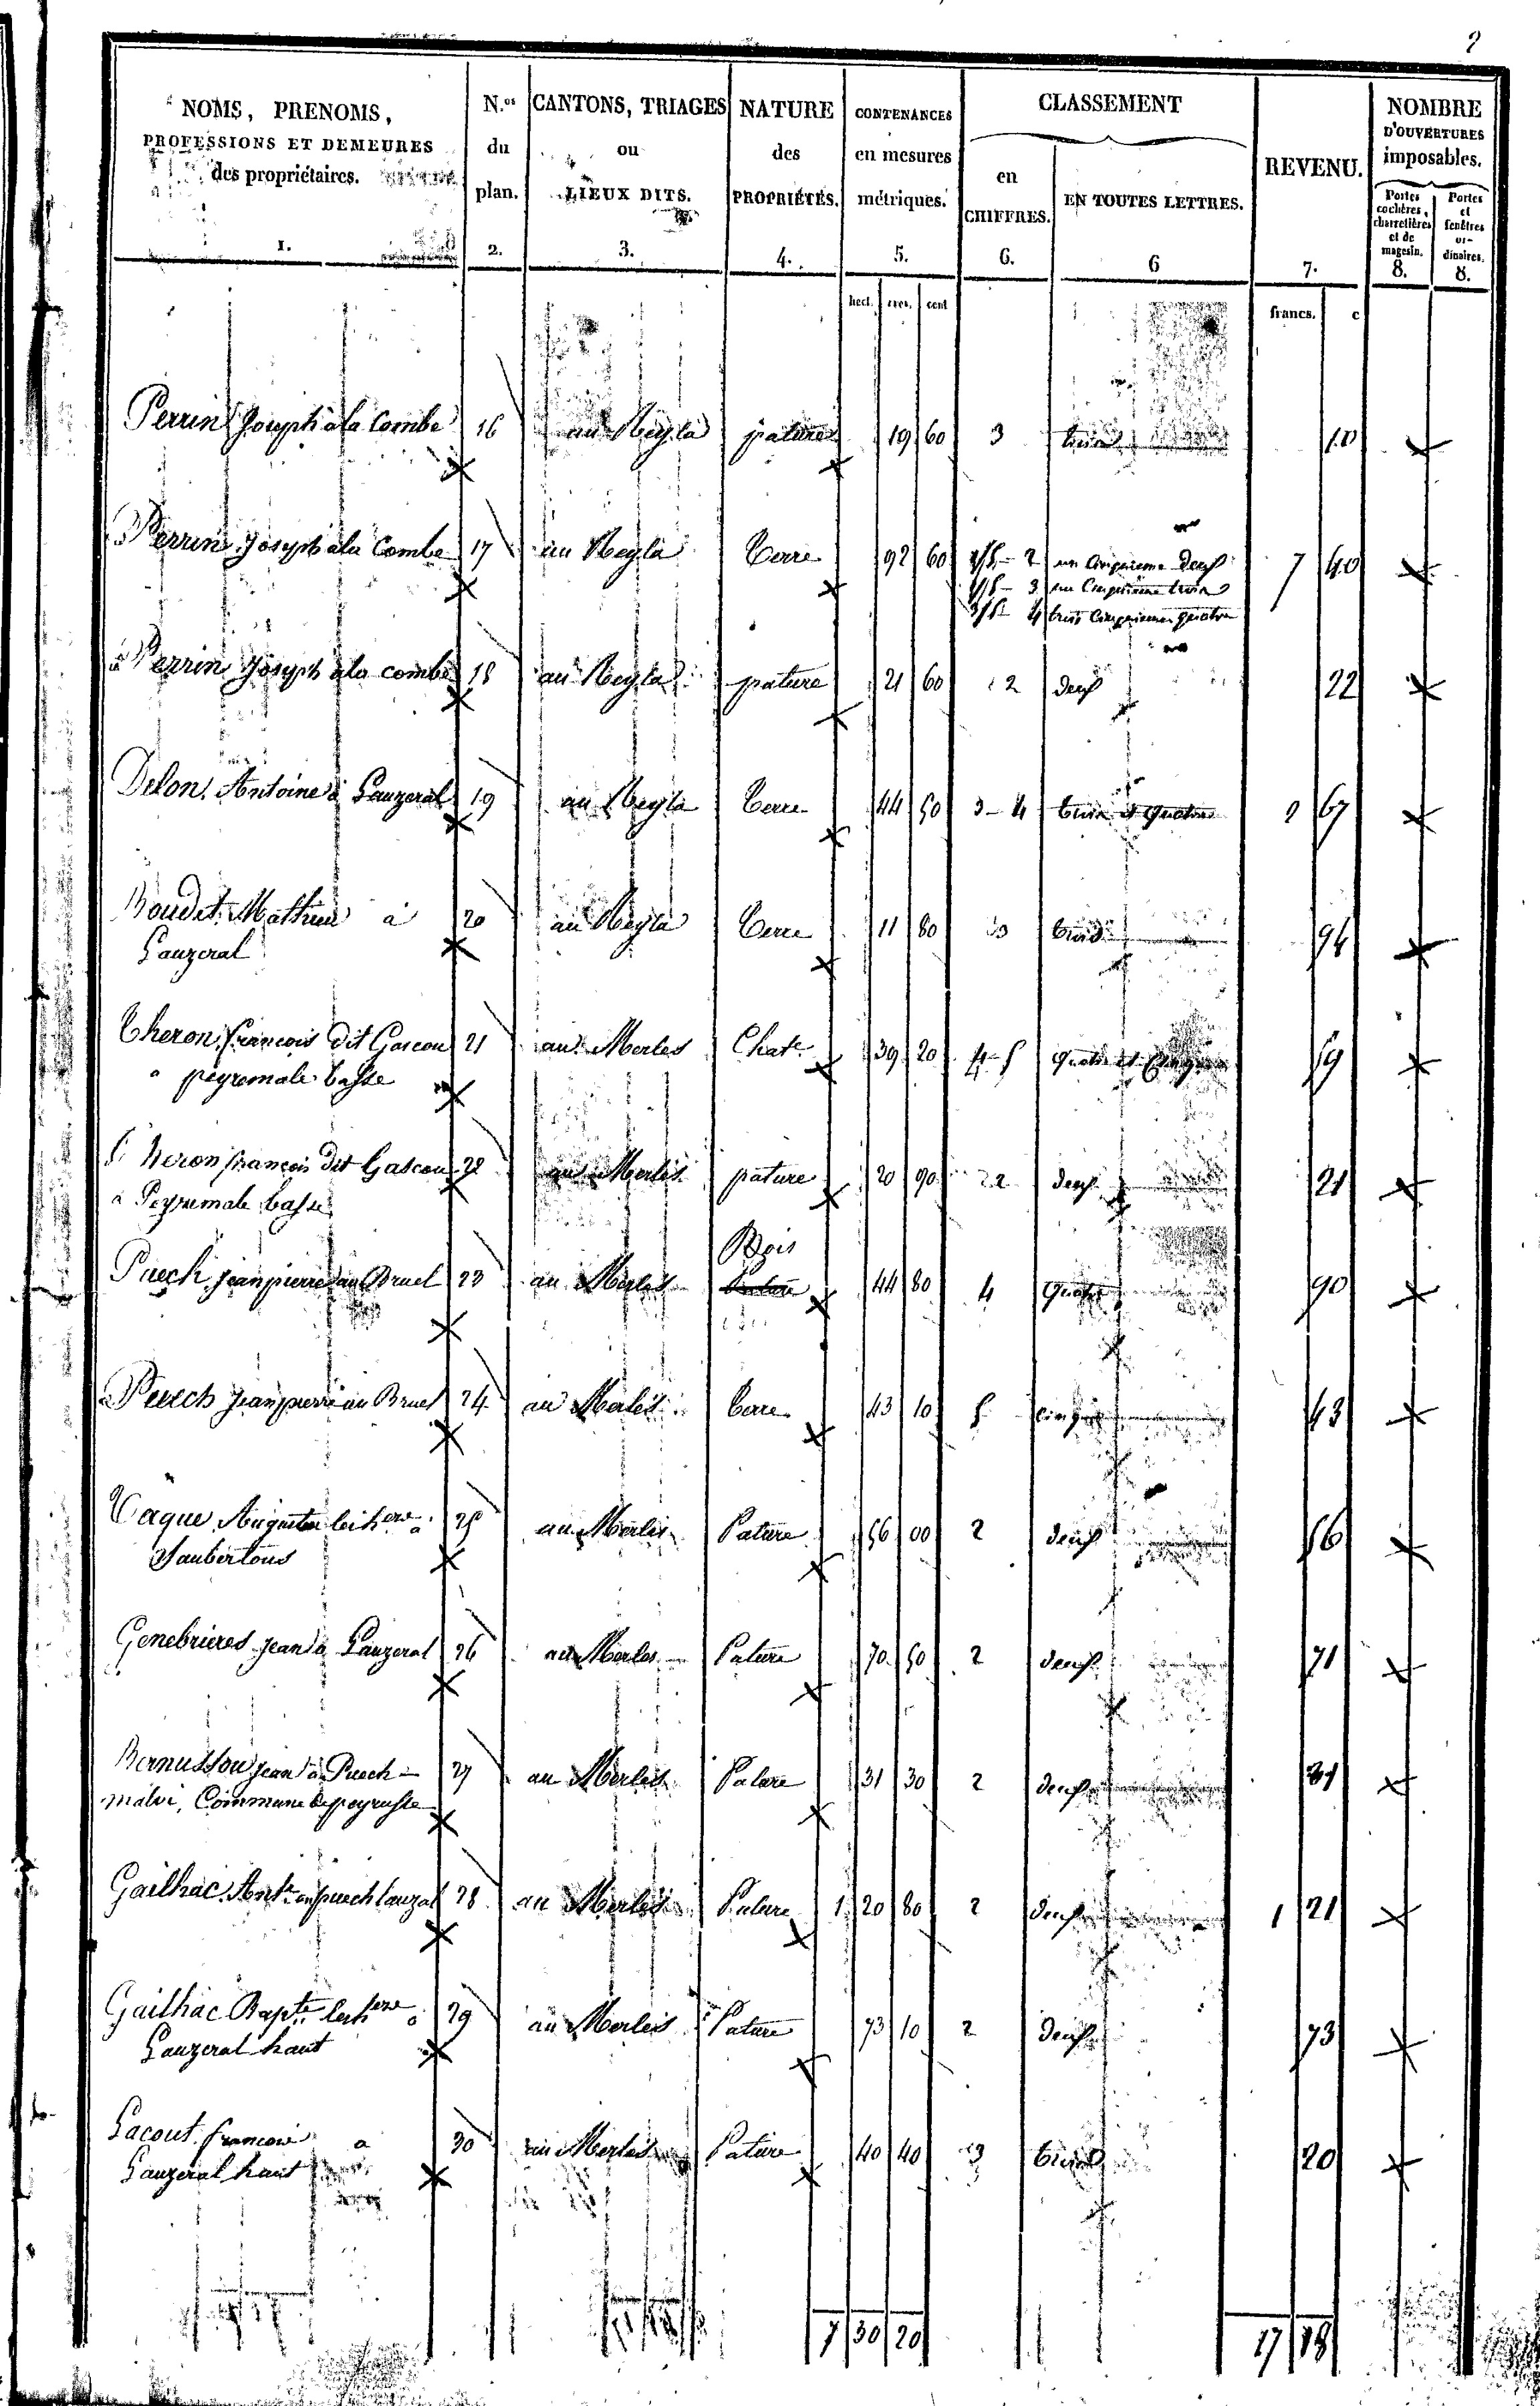 2
NOMS, PRENOMS, PROFESSIONS ET DEMEURES des propriétaires. 1.
N.os du plan. 2.
CANTONS, TRIAGES ou LIEUX DITS. 3.
NATURE des PROPRIÉTÉS. 4.
CONTENANCES en mesures métriques. 5.
CLASSEMENT
en CHIFFRES. 6.
EN TOUTES LETTRES. 6
REVENU. 7.
NOMBRE D'OUVERTURES imposables.
Portes cochères, charretières et de magasin. 8.
Portes et fenêtres or-dinaires. 8.
hect. ares. cent francs. c
Perrin Joseph à la Combe 16 au Reyla pature 19 60 3 trois 10
Perrin Joseph à la Combe 17 au Reyla Terre 92 60 1/5 - 2 un Cinquieme deux 7 40
1/5 - 3 un Cinquieme trois
3/5 - 4 trois Cinquiemes quatre
Perrin Joseph à la combe 18 au Reyla pature 21 60 2 deux 22
Delon Antoine à Lauzeral 19 au Reyla Terre 44 50 3-4 trois et quatre 2 67
Boudet Mathieu à 20 au Reyla Terre 11 80 3 trois 94
Lauzeral
Theron françois dit Gascou 21 au Merles Chate 39 20 4-5 quatre et Cinq 59
a peyremale basse
Theron françois dit Gascou 22 au Merles pature 20 90 2 deux 21
à Peyremale basse
Bois
Puech jean pierre au Bruel 23 au Merles Pature 44 80 4 quatre 90
Puech jean pierre au Bruel 24 au Merles Terre 43 10 5 cinq 43
25 au Merles Pature 56 00 2 deux 56
Genebrieres jean à Lauzeral 26 au Merles Pature 70 50 2 deux 71
Bernussou jean à Puech- 27 au Merles Pature 31 30 2 deux 31
malvi, Commune de peyrusse
Gailhac Ante au puech lauzal 28 au Merles Pature 1 20 80 2 deux 1 21
Gailhac Bapte 29 au Merles Pature 73 10 2 deux 73
Lauzeral haut
Lacout françois a 30 au Merles Pature 40 40 3 trois 20
Lauzeral haut
7 30 20 17 18